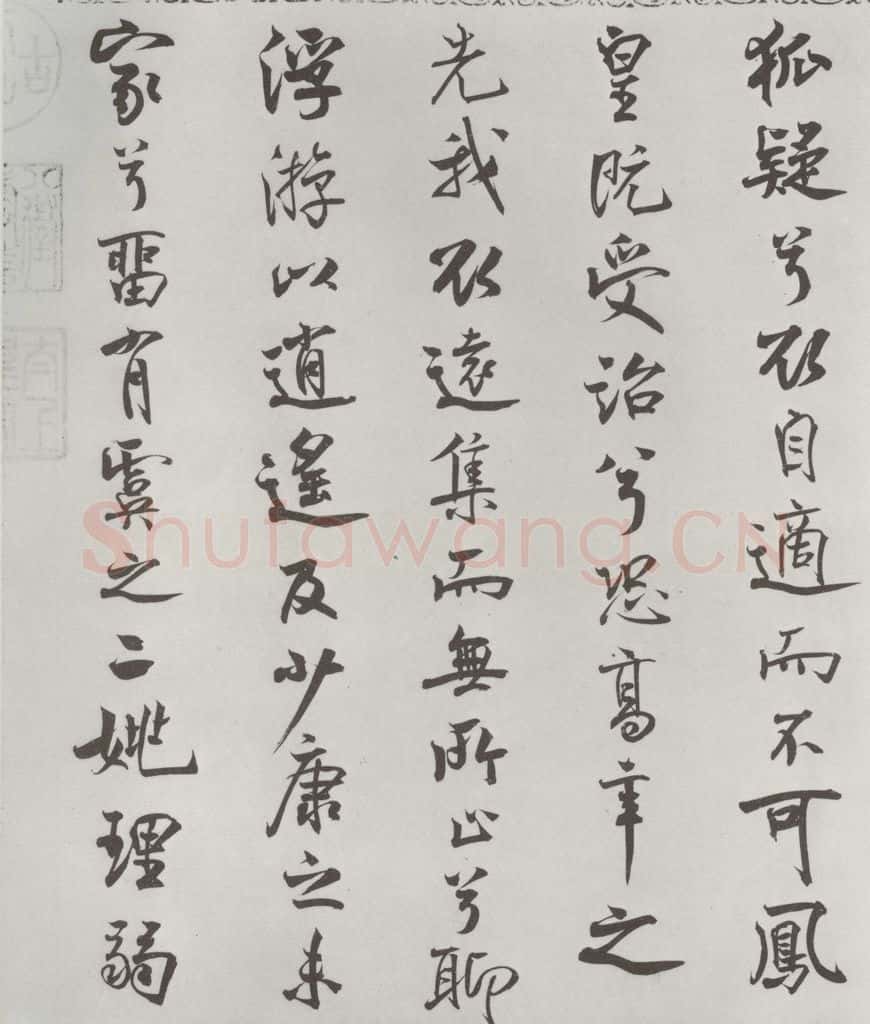 狐疑兮欲自適而不可鳳
皇既受詒兮恐高辛之
先我欲遠集而無所止兮聊
浮游以逍遙及少康之未
家兮畱有虞之二姚理弱
Shufawang.CN